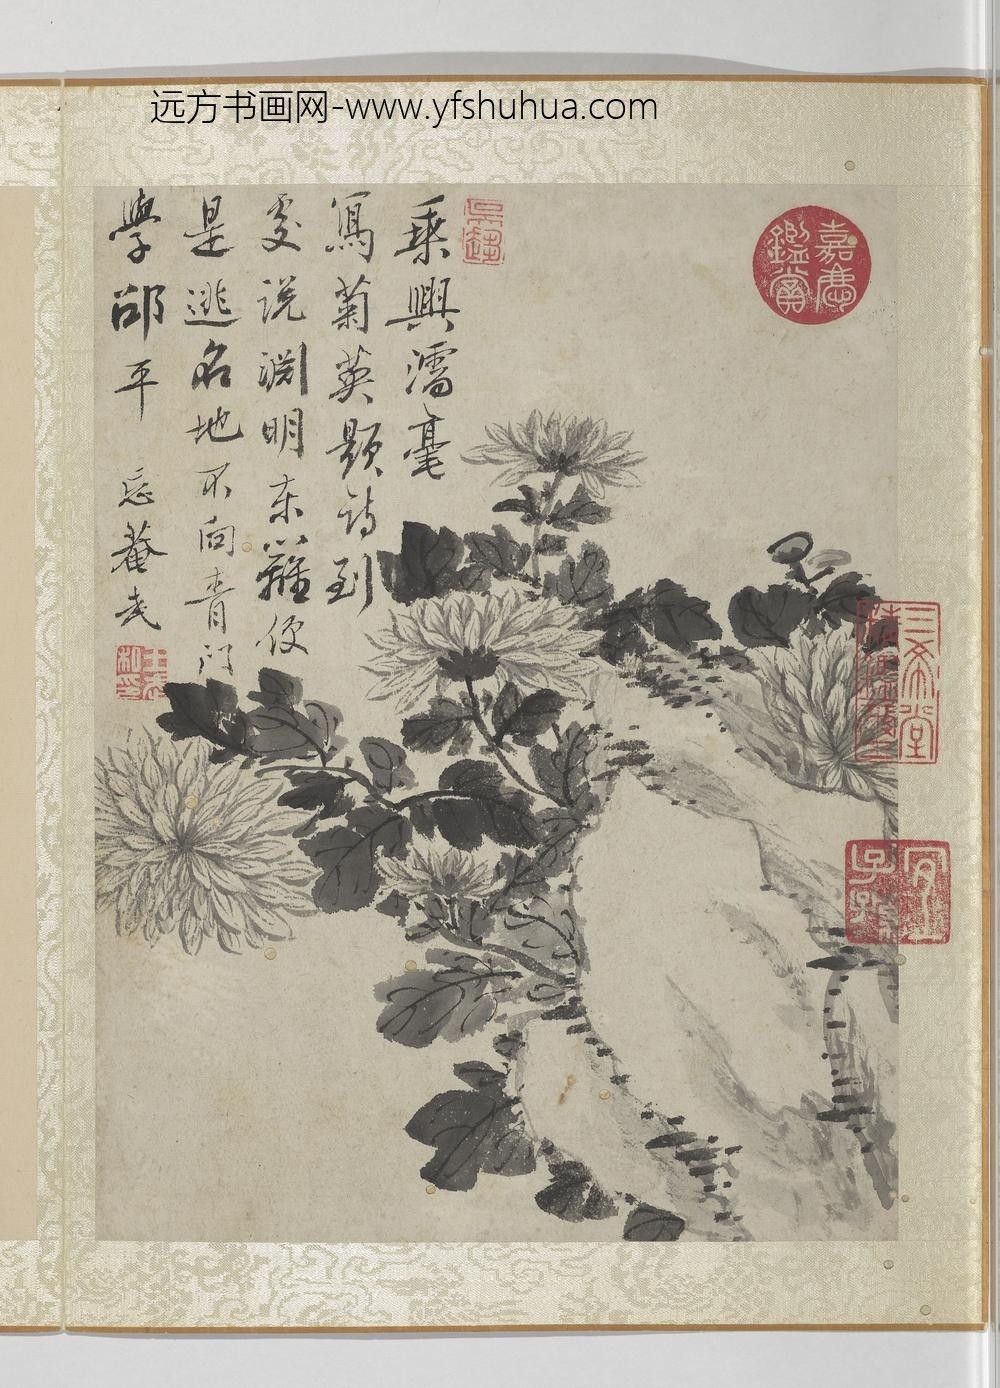 远方书画网-www.yfshuhua.com
乗興濡毫
寫菊英題詩到
處说淵明東籬便
是逃名地不向青門
學邵平 忘菴武
嘉慶鑑賞
三希堂精鑑璽
宜子孫
王武私印